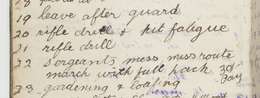 19 leave after guard
20 rifle drill & kit fatigue
21 rifle drill
22 sergeants mess mess route
march with full pack 30
23 gardening &